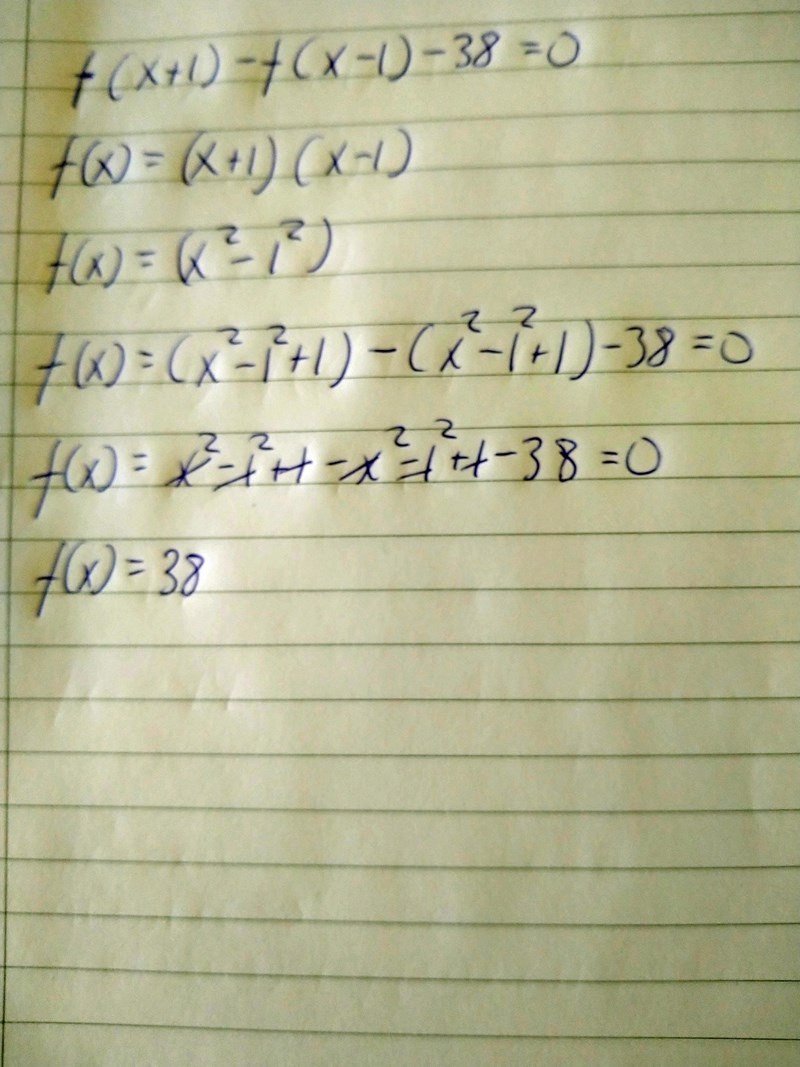 f(x+1) - f(x-1) - 38 = 0
f(x) = (x+1)(x-1)
f(x) = (x² - 1²)
f(x) = (x² - 1² + 1) - (x² - 1² + 1) - 38 = 0
f(x) = x² - 1² + 1 - x² - 1² + 1 - 38 = 0
f(x) = 38